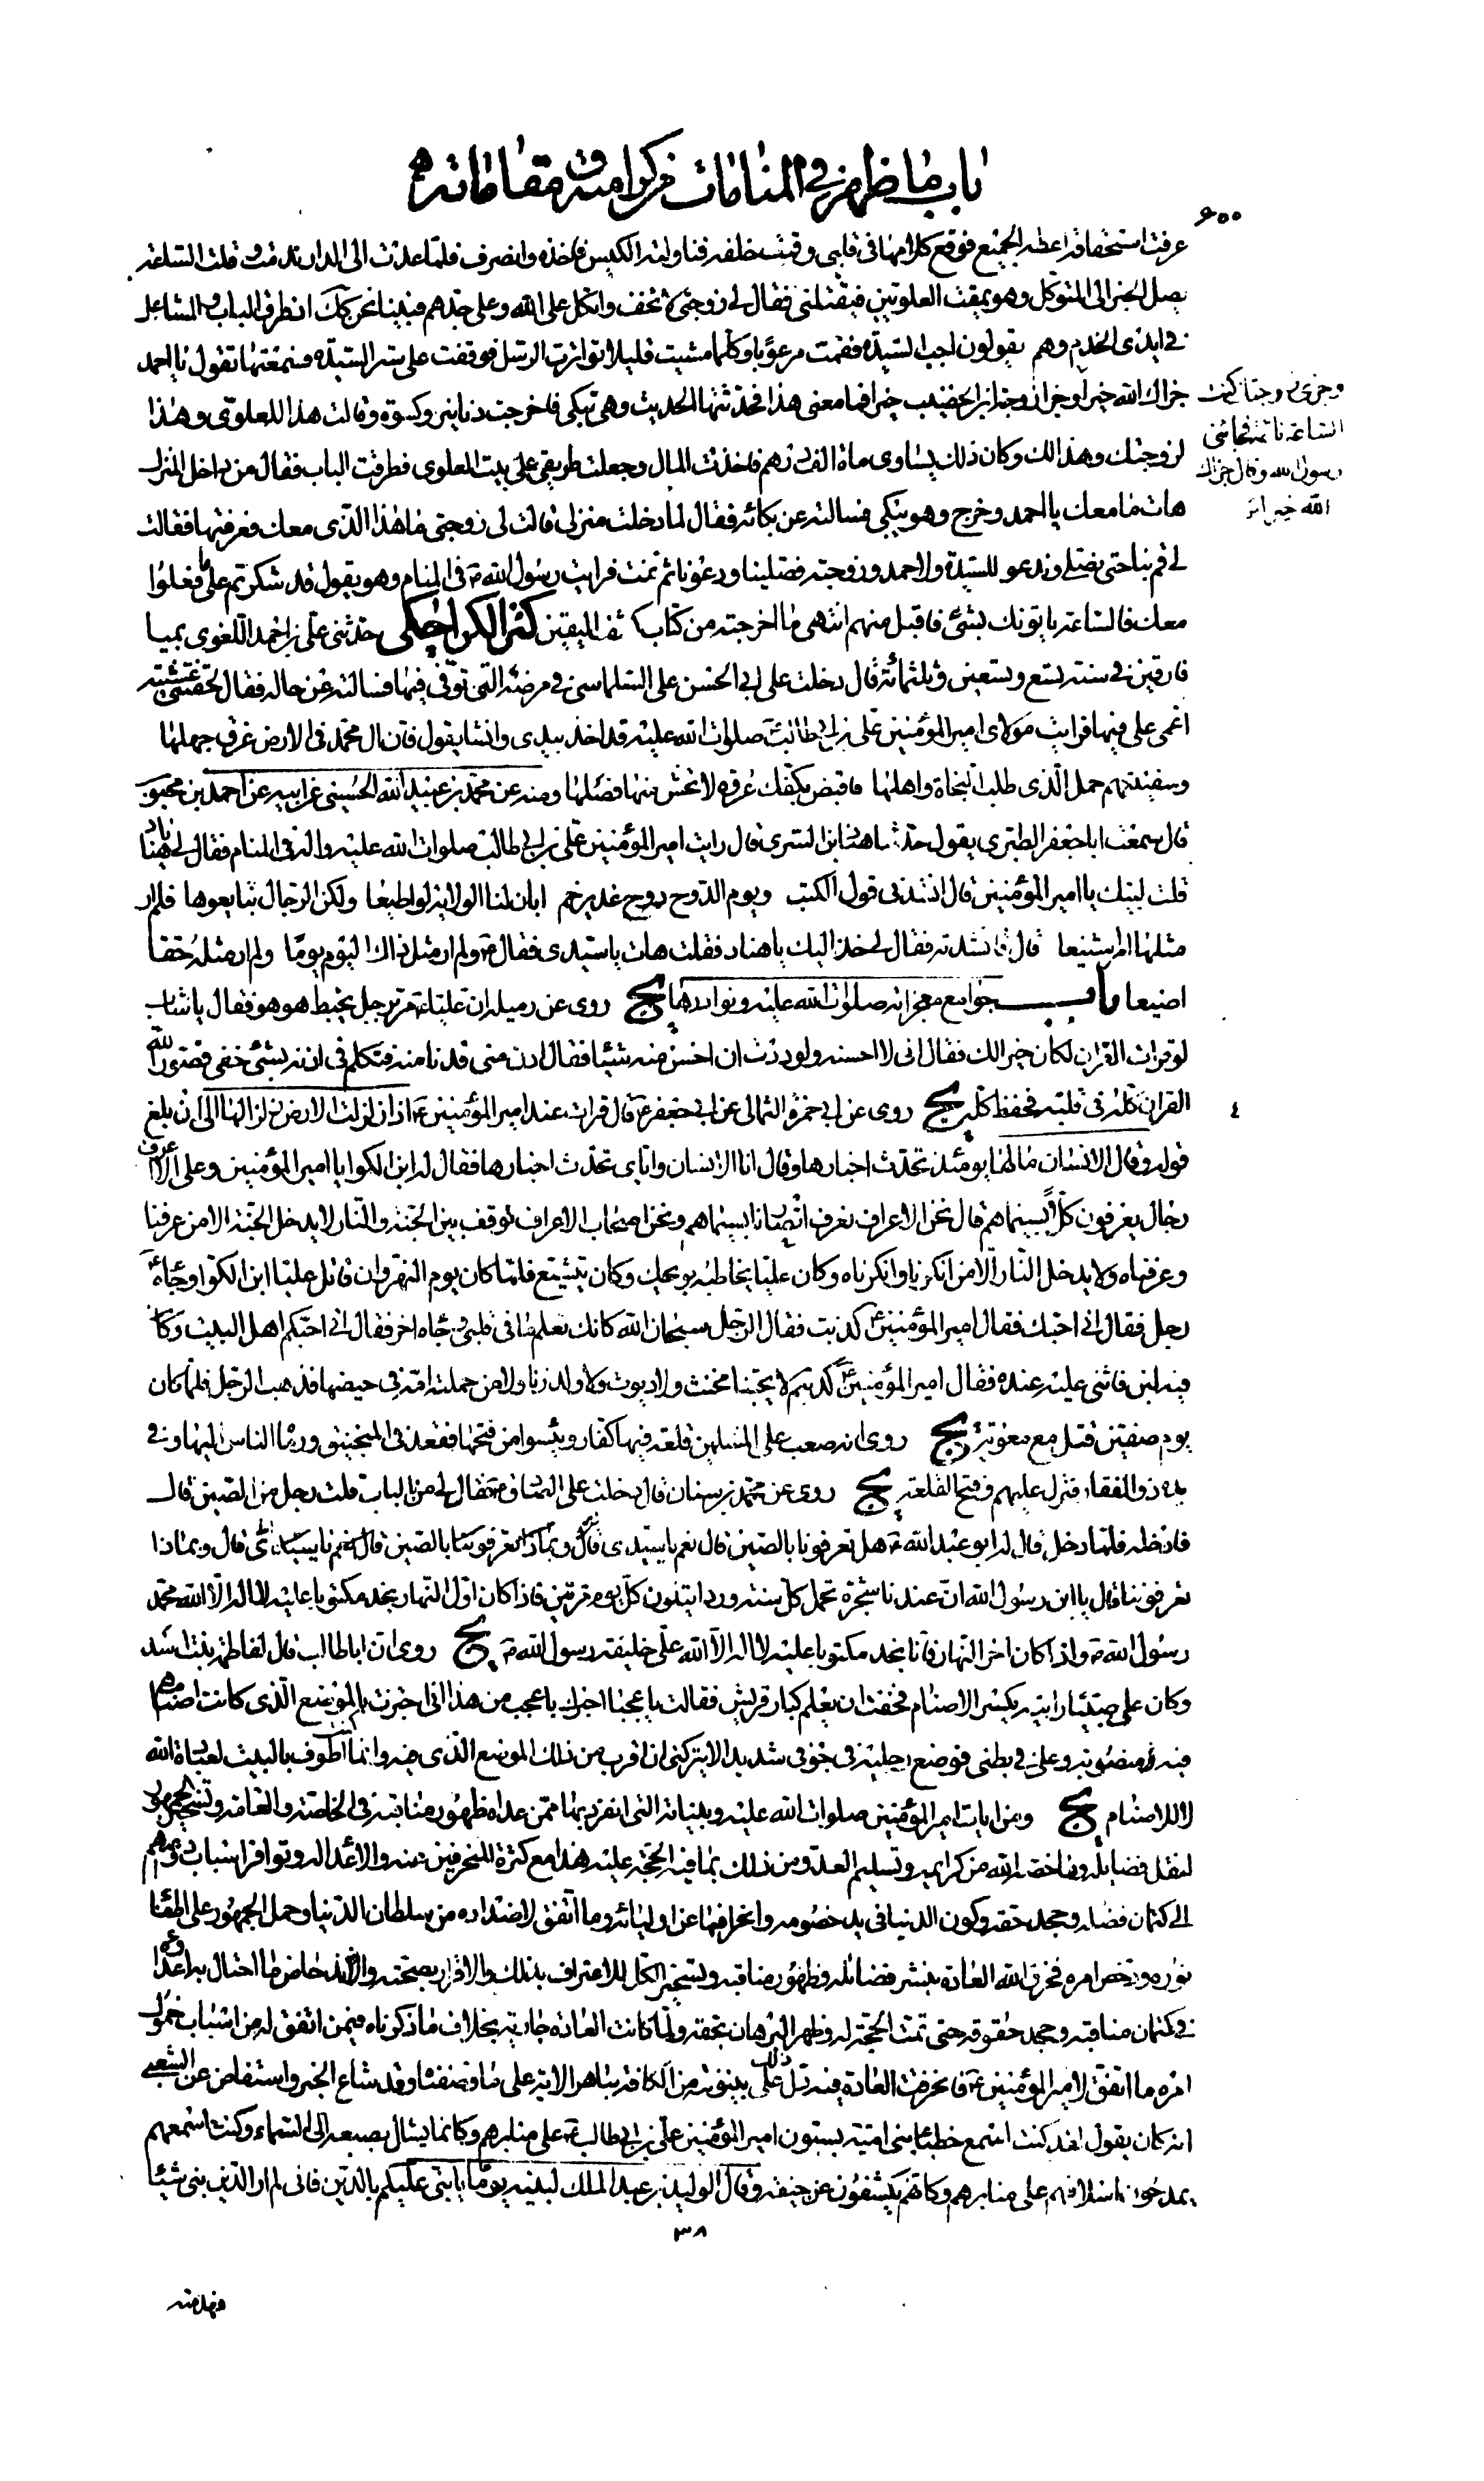 باب ما ظهر في المنامات من كراماته و مقاماته
٦٠٠
عرفت استحقاقه اعطه الجميع فوقع كلامها في قلبي وقمت خلفه فناولته الكيس فاخذه وانصرف فلما عدت الى الدار ندمت وقلت الساعة
يصل الخبر الى المتوكل وهو يمقت العلويين فيقتلني فقال لي زوجتي لا تخف واتكل على الله وعلى جدهم فبينا نحن كك اذ طرق الباب والمشاعل
في ايدي الخدم وهم يقولون اجب السيدة فقمت مرعوبا وكلما مشيت قليلا تواترت الرسل فوقفت على ستر السيدة فسمعتها تقول يا احمد
جزاك الله خيرا وجزا زوجتك ابن الخضيب خيرا فما معنى هذا فحدثتها الحديث وهي تبكي فاخرجت دنانير وكسوة وقالت هذا للعلوي وهذا
وجزى زوجتك كنت
الساعة نائمة فجائني
رسول الله وقال جزاك
الله خيرا
لزوجتك وهذا لك وكان ذلك يساوي مائة الف درهم فاخذت المال وجعلت طريقي على بيت العلوي فطرقت الباب فقال من داخل المنزل
هات ما معك يا احمد وخرج وهو يبكي فسالته عن بكائه فقال لما دخلت منزلي قالت لي زوجتي ما هذا الذي معك فعرفتها فقالت
لي قم بنا حتى نصلي وندعو للسيدة ولاحمد وزوجته فصلينا ودعونا ثم نمت فرايت رسول الله ص في المنام وهو يقول قد شكرتهم على ما فعلوا
معك فالساعة ياتونك بشئ فاقبل منهم انتهى ما اخرجته من كتاب كشف اليقين كنز الكراجكي حدثني علي بن احمد اللغوي بميا
فارقين في سنة تسع وتسعين وثلثمائة قال دخلت على ابي الحسن علي السلماسي في مرضه التي توفي فيها فسالته عن حاله فقال لحقتني غشية
اغمي علي فيها فرايت مولاي امير المؤمنين علي بن ابي طالب صلوات الله عليه قد اخذ بيدي وانشا يقول فان ال محمد في الارض غرق جهلها
وسفينتهم حمل الذي طلب النجاة واهلها فاقبض بكفك عروة لا تخش منها فصلها ومنه عن محمد بن عبيد الله الحسيني عن ابيه عن احمد بن محبوب
قال سمعت ابا جعفر الطبري يقول حدثنا هناد ابن السري قال رايت امير المؤمنين علي بن ابي طالب صلوات الله عليه واله في المنام فقال لي يا هناد
قلت لبيك يا امير المؤمنين قال انشدني قول الكميت ويوم الدوح دوح غدير خم ابان لنا الولاية لو اطيعا ولكن الرجال تبايعوها فلم ار
مثلها امرا شنيعا قال فانشدته فقال لي خذ اليك يا هناد فقلت هات يا سيدي فقال ع ولم ار مثل ذاك اليوم يوما ولم ار مثله حقا
اضيعا باب جوامع معجزاته صلوات الله عليه ونوادرها يج روي عن رميلة ان عليا ع مر برجل يخبط هو هو فقال يا شاب
لو قرات القران لكان خيرا لك فقال اني لا احسنه ولوددت ان احسن منه شيئا فقال ادن مني فدنا منه فتكلم في اذنه بشئ خفي فصور الله
القران كله في قلبه فحفظ كله يج روي عن ابي حمزة الثمالي عن ابي جعفر ع قال قرات عند امير المؤمنين ع اذا زلزلت الارض زلزالها الى ان بلغ
٤
قوله وقال الانسان ما لها يومئذ تحدث اخبارها وقال انا الانسان واياي تحدث اخبارها فقال له ابن الكوا يا امير المؤمنين وعلى الاعراف
رجال يعرفون كلا بسيماهم قال نحن الاعراف نعرف انصارنا بسيماهم ونحن اصحاب الاعراف نوقف بين الجنة والنار لا يدخل الجنة الا من عرفنا
وعرفناه ولا يدخل النار الا من انكرنا وانكرناه وكان علي ع يخاطبه بويحك وكان يتشيع فلما كان يوم النهروان قاتل عليا ابن الكوا وجاءه
رجل فقال اني احبك فقال امير المؤمنين ع كذبت فقال الرجل سبحان الله كانك تعلم ما في قلبي وجاءه اخر فقال اني احبكم اهل البيت وكان
فيه لين فاثنى عليه عنده فقال امير المؤمنين ع كذبتم لا يحبنا مخنث ولا ديوث ولا ولد زنا ولا من حملته امه في حيضها فذهب الرجل فلما كان
يوم صفين قتل مع معوية يج روي انه صعب على المسلمين قلعة فيها كفار ويئسوا من فتحها فقعد في المنجنيق ورماه الناس اليها وفي
يده ذو الفقار فنزل عليهم وفتح القلعة يج روي عن محمد بن سنان قال دخلت على الصادق ع فقال لي من بالباب قلت رجل من الصين قال
فادخله فلما دخل قال له ابو عبد الله ع هل تعرفونا بالصين قال نعم يا سيدي قال وبماذا تعرفوننا
تعرفوننا قال يا ابن رسول الله ان عندنا شجرة تحمل كل سنة وردا يتلون كل يوم مرتين فاذا كان اول النهار نجد مكتوبا عليه لا اله الا الله محمد
رسول الله ص واذا كان اخر النهار فانا نجد مكتوبا عليه لا اله الا الله علي خليفة رسول الله ص يج روي ان ابا طالب قال لفاطمة بنت اسد
وكان علي صبيا رايته يكسر الاصنام فخفت ان يعلم كبار قريش فقالت يا عجبا اخبرك باعجب من هذا اني اجتزت بالموضع الذي كانت اصنامهم
فيه منصوبة وعلي في بطني فوضع رجليه في جوفي شديدا لا يتركني ان اقرب من ذلك الموضع الذي فيه وانما كنت اطوف بالبيت لعبادة الله
لا للاصنام يج ومن ايات امير المؤمنين صلوات الله عليه وبيناته التي انفرد بها ممن عداه ظهور مناقبه في الخاصة والعامة وتسخير الجمهور
لنقل فضايله وما خصه الله من كرايمه وتسليم العدو من ذلك بما فيه الحجة عليه هذا مع كثرة المنحرفين عنه والاعداء له وتوافر اسباب دواعيهم
الى كتمان فضله وجحد حقه وكون الدنيا في يد خصومه وانحرافها عن اوليائه وما اتفق لاضداده من سلطان الدنيا وحمل الجمهور على اطفاء
نوره ودحض امره فخرق الله العادة بنشر فضائله وظهور مناقبه وتسخير الكل للاعتراف بذلك والاقرار بصحته واندحاض ما احتال به اعداؤه
في كتمان مناقبه وجحد حقوقه حتى تمت الحجة له وظهر البرهان بحقه ولما كانت العادة جارية بخلاف ما ذكرناه فيمن اتفق له من اسباب خمول
امره ما اتفق لامير المؤمنين ع فانخرقت العادة فيه دل ذلك على بينونته من الكافة بباهر الاية على ما وصفناه وقد شاع الخبر واستفاض عن الشعبي
انه كان يقول لقد كنت اسمع خطباء بني امية يسبون امير المؤمنين علي بن ابي طالب ع على منابرهم وكانما يشال بضبعه الى السماء وكنت اسمعهم
يمدحون اسلافهم على منابرهم وكانهم يكشفون عن جيفة وقال الوليد بن عبد الملك لبنيه يوما يا بني عليكم بالدين فاني لم ار الدين بنى شيئا
٣٨
فهدمته